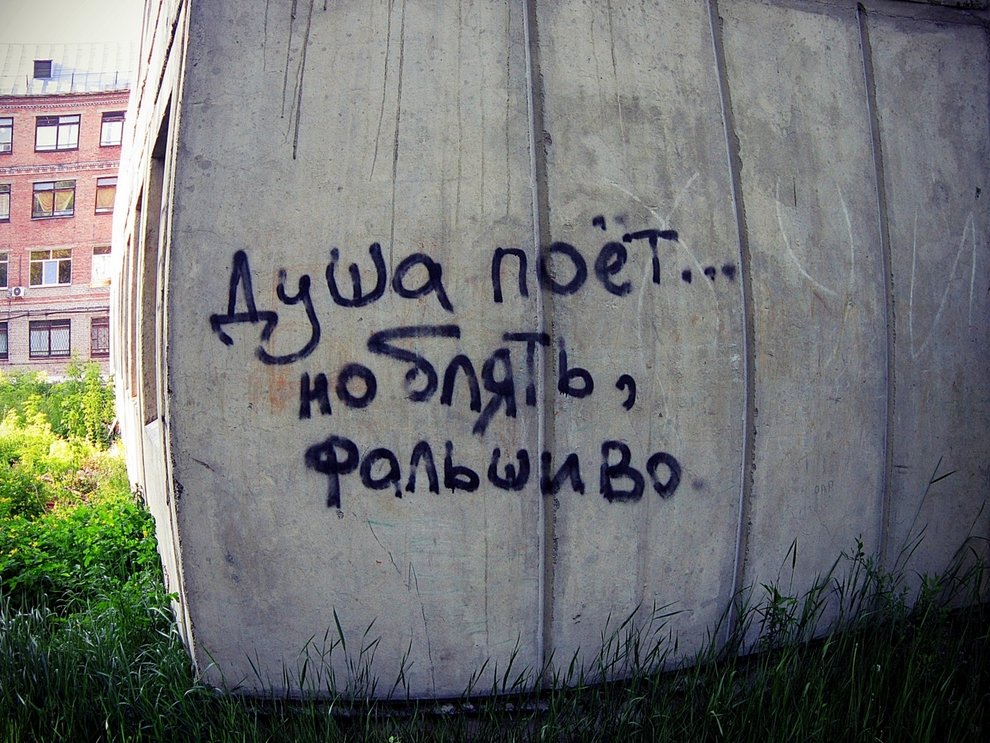 Душа поёт...
но блять,
фальшиво